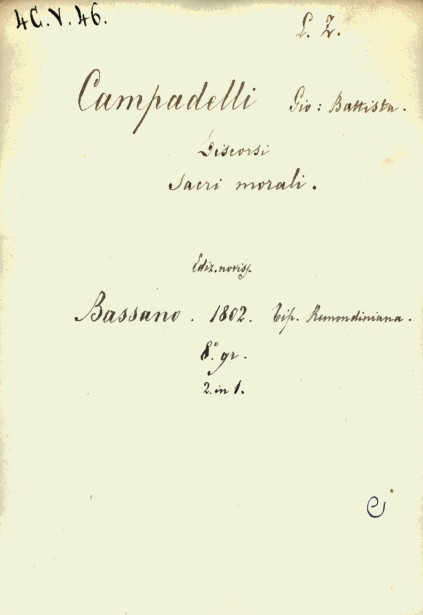 4C.V.46.
L. Z.
Campadelli Gio: Battista.
Discorsi
Sacri morali.
Ediz. noviss.
Bassano. 1802. Tip. Remondiniana.
8.° gr.
2. in 1.